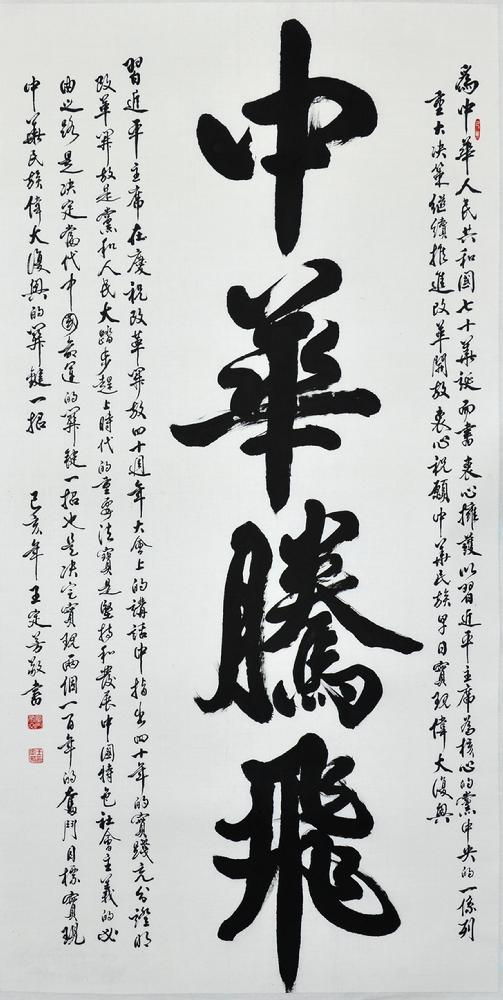 為中華人民共和國七十華誕而書衷心擁護以習近平主席為核心的黨中央的一係列
重大决策繼續推進改革開放衷心祝願中華民族早日實現偉大復興
中華騰飛
習近平主席在慶祝改革開放四十週年大會上的講話中指出四十年的實踐充分證明
改革開放是黨和人民大踏步趕上時代的重要法寶是堅持和發展中國特色社會主義的必
由之路是决定當代中國命運的關鍵一招也是决定實現兩個一百年的奮鬥目標實現
中華民族偉大復興的關鍵一招
己亥年王定芳敬書